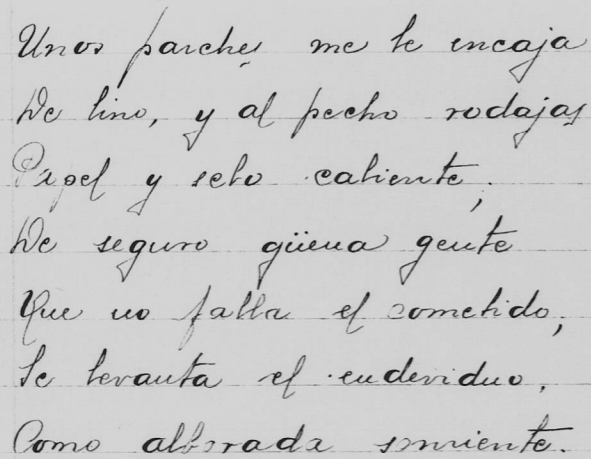 Unos parches me le encaja
De lino, y al pecho rodajas
Papel y sebo caliente;
De seguro güena gente
Que no falla el cometido,
Se levanta el endeviduo,
Como alborada sonriente.